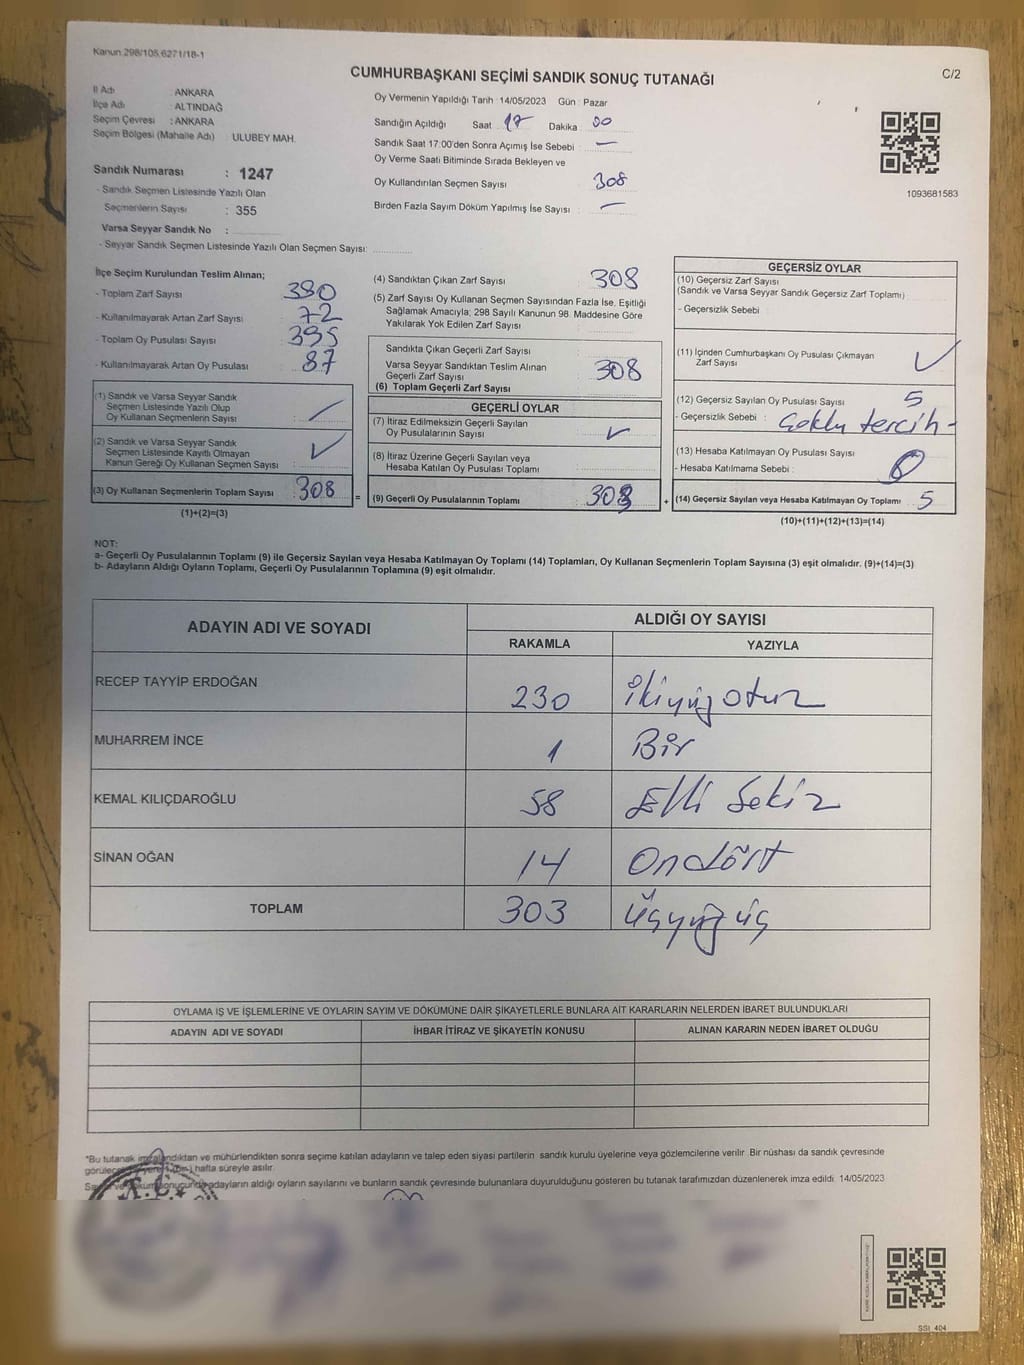 Kanun.298/105,6271/18-1
C/2
CUMHURBAŞKANI SEÇİMİ SANDIK SONUÇ TUTANAĞI
İl Adı : ANKARA
İlçe Adı : ALTINDAĞ
Seçim Çevresi : ANKARA
Seçim Bölgesi (Mahalle Adı) : ULUBEY MAH.
Sandık Numarası : 1247
- Sandık Seçmen Listesinde Yazılı Olan
Seçmenlerin Sayısı : 355
Varsa Seyyar Sandık No :
- Seyyar Sandık Seçmen Listesinde Yazılı Olan Seçmen Sayısı:
Oy Vermenin Yapıldığı Tarih : 14/05/2023 Gün : Pazar
Sandığın Açıldığı Saat 17 Dakika 00
Sandık Saat 17:00'den Sonra Açımış İse Sebebi : —
Oy Verme Saati Bitiminde Sırada Bekleyen ve
Oy Kullandırılan Seçmen Sayısı 308
Birden Fazla Sayım Döküm Yapılmış İse Sayısı : —
1093681583
İlçe Seçim Kurulundan Teslim Alınan;
- Toplam Zarf Sayısı 380
- Kullanılmayarak Artan Zarf Sayısı : 72
- Toplam Oy Pusulası Sayısı : 395
- Kullanılmayarak Artan Oy Pusulası : 87
(1) Sandık ve Varsa Seyyar Sandık
Seçmen Listesinde Yazılı Olup
Oy Kullanan Seçmenlerin Sayısı :
(2) Sandık ve Varsa Seyyar Sandık
Seçmen Listesinde Kayıtlı Olmayan
Kanun Gereği Oy Kullanan Seçmen Sayısı : ✓
(3) Oy Kullanan Seçmenlerin Toplam Sayısı : 308
(1)+(2)=(3)
=
(4) Sandıktan Çıkan Zarf Sayısı : 308
(5) Zarf Sayısı Oy Kullanan Seçmen Sayısından Fazla İse, Eşitliği
Sağlamak Amacıyla; 298 Sayılı Kanunun 98. Maddesine Göre
Yakılarak Yok Edilen Zarf Sayısı :
Sandıkta Çıkan Geçerli Zarf Sayısı :
Varsa Seyyar Sandıktan Teslim Alınan
Geçerli Zarf Sayısı : 308
(6) Toplam Geçerli Zarf Sayısı
GEÇERLİ OYLAR
(7) İtiraz Edilmeksizin Geçerli Sayılan
Oy Pusulalarının Sayısı : ✓
(8) İtiraz Üzerine Geçerli Sayılan veya
Hesaba Katılan Oy Pusulası Toplamı :
(9) Geçerli Oy Pusulalarının Toplamı : 303
+
GEÇERSİZ OYLAR
(10) Geçersiz Zarf Sayısı
(Sandık ve Varsa Seyyar Sandık Geçersiz Zarf Toplamı)
- Geçersizlik Sebebi :
(11) İçinden Cumhurbaşkanı Oy Pusulası Çıkmayan
Zarf Sayısı : ✓
(12) Geçersiz Sayılan Oy Pusulası Sayısı : 5
- Geçersizlik Sebebi : Çoklu tercih -
(13) Hesaba Katılmayan Oy Pusulası Sayısı :
- Hesaba Katılmama Sebebi : 0
(14) Geçersiz Sayılan veya Hesaba Katılmayan Oy Toplamı : 5
(10)+(11)+(12)+(13)=(14)
NOT:
a- Geçerli Oy Pusulalarının Toplamı (9) ile Geçersiz Sayılan veya Hesaba Katılmayan Oy Toplamı (14) Toplamları, Oy Kullanan Seçmenlerin Toplam Sayısına (3) eşit olmalıdır. (9)+(14)=(3)
b- Adayların Aldığı Oyların Toplamı, Geçerli Oy Pusulalarının Toplamına (9) eşit olmalıdır.
ADAYIN ADI VE SOYADI ALDIĞI OY SAYISI
RAKAMLA YAZIYLA
RECEP TAYYİP ERDOĞAN 230 ikiyüzotuz
MUHARREM İNCE 1 Bir
KEMAL KILIÇDAROĞLU 58 Elli Sekiz
SİNAN OĞAN 14 Ondört
TOPLAM 303 üçyüzüç
OYLAMA İŞ VE İŞLEMLERİNE VE OYLARIN SAYIM VE DÖKÜMÜNE DAİR ŞİKAYETLERLE BUNLARA AİT KARARLARIN NELERDEN İBARET BULUNDUKLARI
ADAYIN ADI VE SOYADI İHBAR İTİRAZ VE ŞİKAYETİN KONUSU ALINAN KARARIN NEDEN İBARET OLDUĞU
*Bu tutanak imzalandıktan ve mühürlendikten sonra seçime katılan adayların ve talep eden siyasi partilerin sandık kurulu üyelerine veya gözlemcilerine verilir. Bir nüshası da sandık çevresinde
hafta süreyle asılır.
adayların aldığı oyların sayılarını ve bunların sandık çevresinde bulunanlara duyurulduğunu gösteren bu tutanak tarafımızdan düzenlenerek imza edildi. 14/05/2023
T.C.
SSI_404